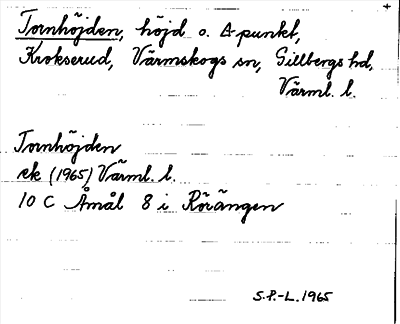 Tornhöjden, höjd o. Δ-punkt,
Krokserud, Värmskogs sn, Gillbergs hd,
Värml. l.
Tornhöjden
ek (1965) Värml. l.
10 C Åmål 8 i Rörängen
S.P.-L. 1965